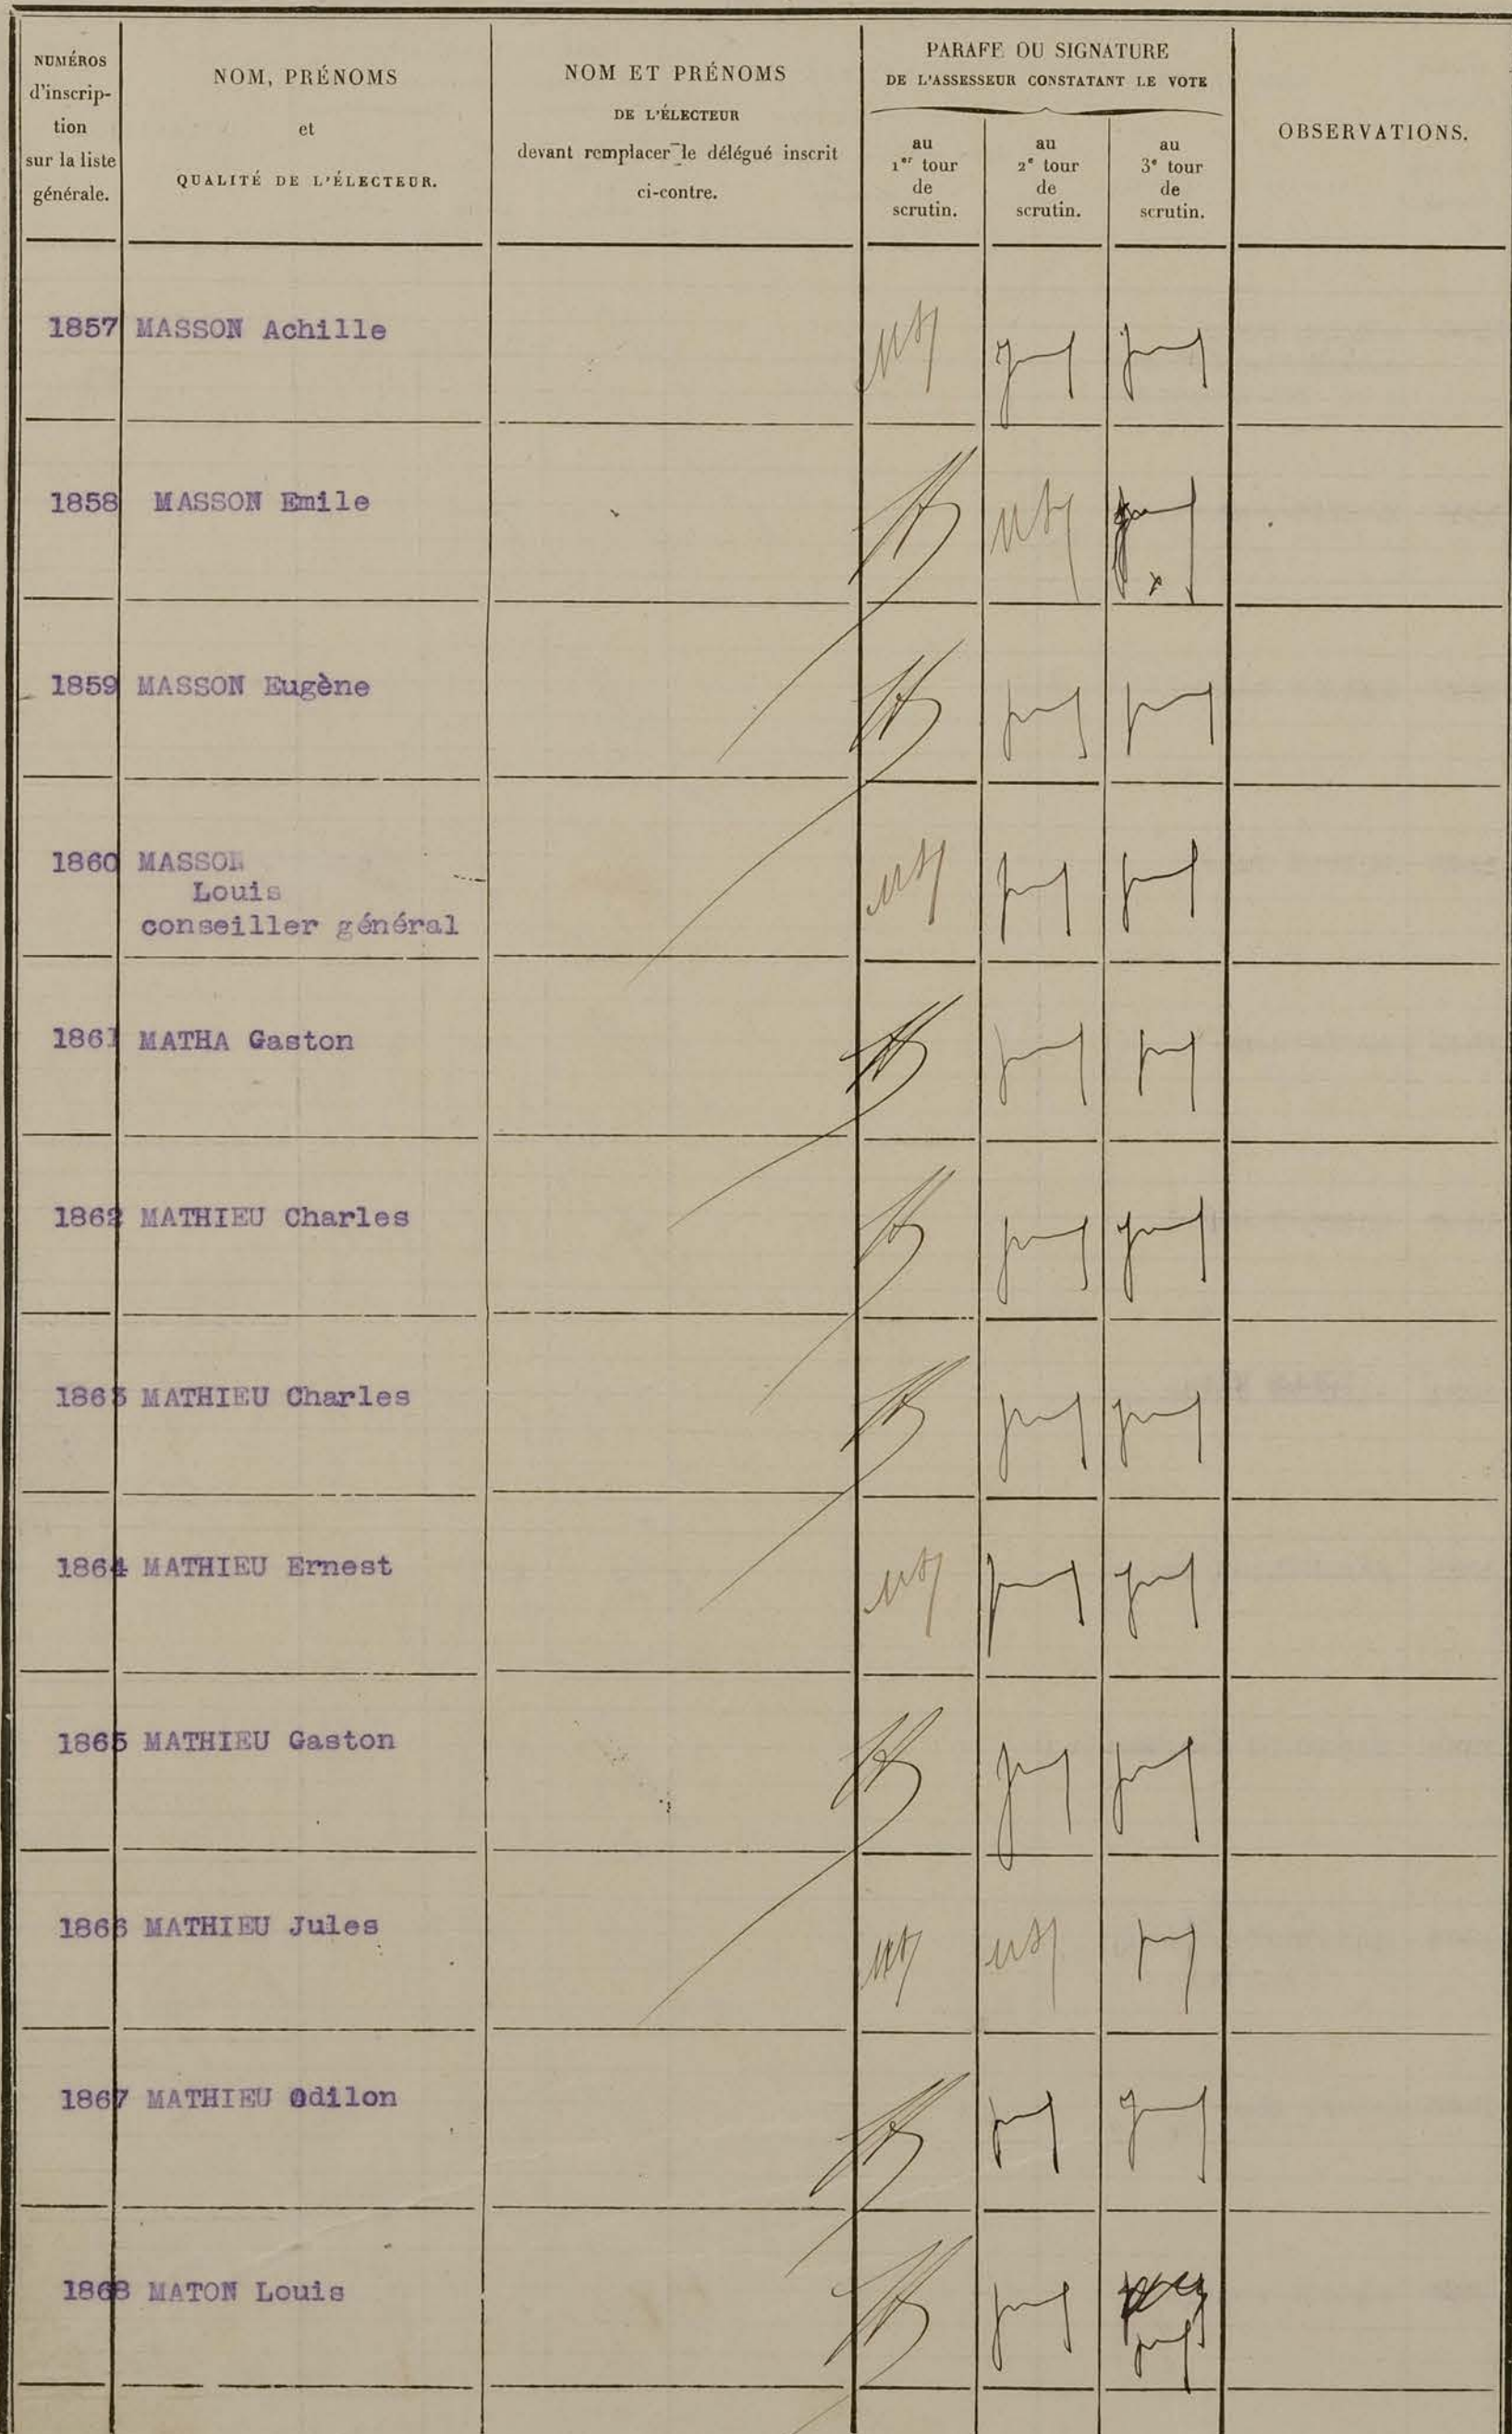 NUMÉROS
d'inscrip-
tion
sur la liste
générale.
NOM, PRÉNOMS
et
QUALITÉ DE L'ÉLECTEUR.
NOM ET PRÉNOMS
DE L'ÉLECTEUR
devant remplacer le délégué inscrit
ci-contre.
PARAFE OU SIGNATURE
DE L'ASSESSEUR CONSTATANT LE VOTE
au
1er tour
de
scrutin.
au
2e tour
de
scrutin.
au
3e tour
de
scrutin.
OBSERVATIONS.
1857 MASSON Achille
1858 MASSON Emile
1859 MASSON Eugène
1860 MASSON
Louis
conseiller général
1861 MATHA Gaston
1862 MATHIEU Charles
1863 MATHIEU Charles
1864 MATHIEU Ernest
1865 MATHIEU Gaston
1866 MATHIEU Jules
1867 MATHIEU Odilon
1868 MATON Louis